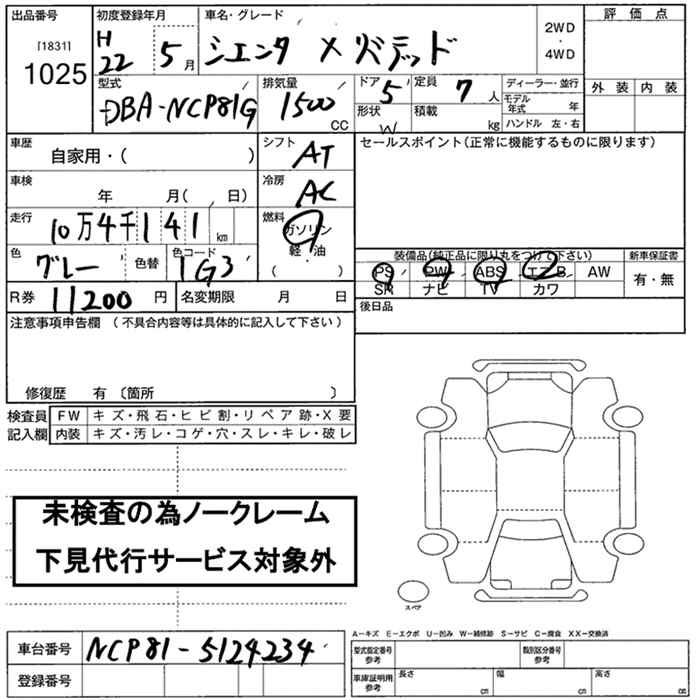 出品番号 初度登録年月 車名・グレード 評価点
[1831] 1025 H22 5月 シエンタ Xリミテッド 2WD・4WD
外装 内装
型式 排気量 ドア 定員 ディーラー・並行
DBA-NCP81G 1500CC 5 7人 モデル年式 年
形状 W 積載 kg ハンドル 左・右
車歴 自家用・( ) シフト AT セールスポイント(正常に機能するものに限ります)
車検 年 月( 日) 冷房 AC
走行 10万4千141km 燃料 ガソリン 軽・油 ( )
色 グレー 色替 色コード 1G3 装備品(純正品に限り丸をつけて下さい) 新車保証書
PS PW ABS エアB AW 有・無
SR ナビ TV カワ
R券 11200円 名変期限 月 日 後日品
注意事項申告欄(不具合内容等は具体的に記入して下さい)
修復歴 有〔箇所 〕
検査員記入欄 FW キズ・飛石・ヒビ割・リペア跡・X要
内装 キズ・汚レ・コゲ・穴・スレ・キレ・破レ
未検査の為ノークレーム
下見代行サービス対象外
スペア
A-キズ E-エクボ U-凹み W-補修跡 S-サビ C-腐食 XX-交換済
車台番号 NCP81-5124234 型式指定番号参考 類別区分番号参考
登録番号 車庫証明用参考 長さ cm 幅 cm 高さ cm